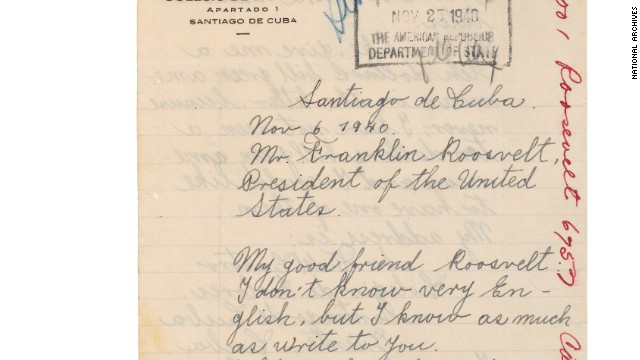 APARTADO 1
SANTIAGO DE CUBA
NOV 27 1940
THE AMERICAN REPUBLICS
DEPARTMENT OF STATE
Santiago de Cuba.
Nov 6 1940.
Mr. Franklin Roosvelt,
President of the United
States.
My good friend Roosvelt
I don't know very En-
glish, but I know as much
as write to you.
Roosevelt 6957
NATIONAL ARCHIVES